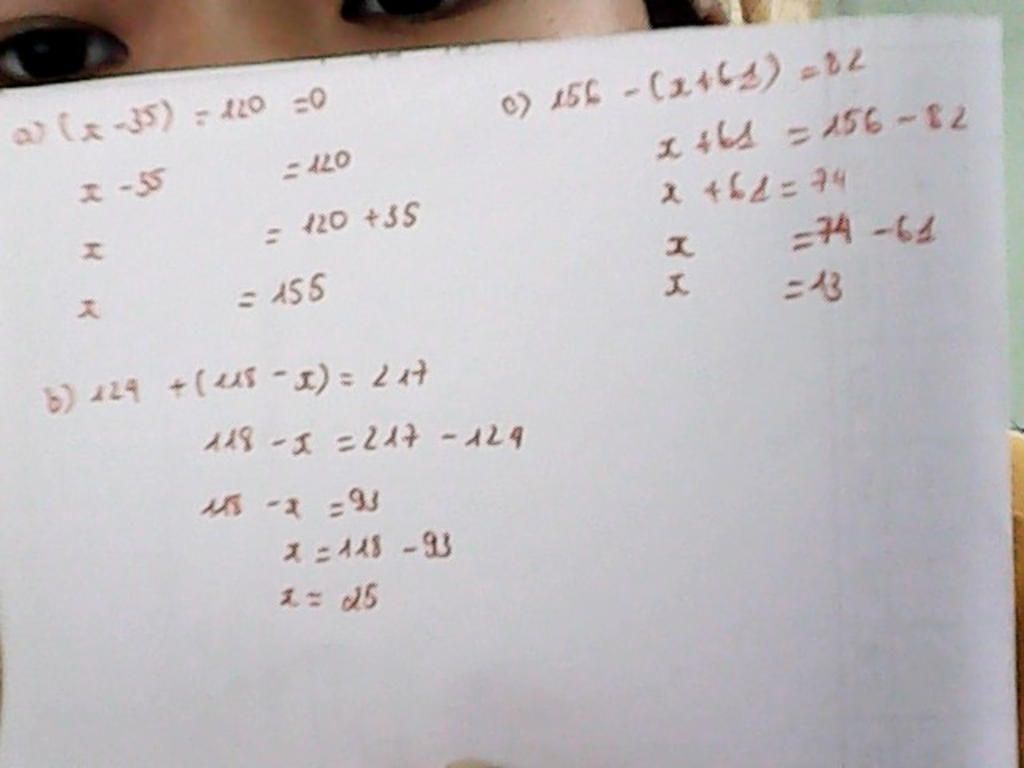 a) (x - 35) = 120 = 0
x - 35 = 120
x = 120 + 35
x = 155
c) 156 - (x + 61) = 82
x + 61 = 156 - 82
x + 61 = 74
x = 74 - 61
x = 13
b) 124 + (118 - x) = 217
118 - x = 217 - 124
118 - x = 93
x = 118 - 93
x = 25